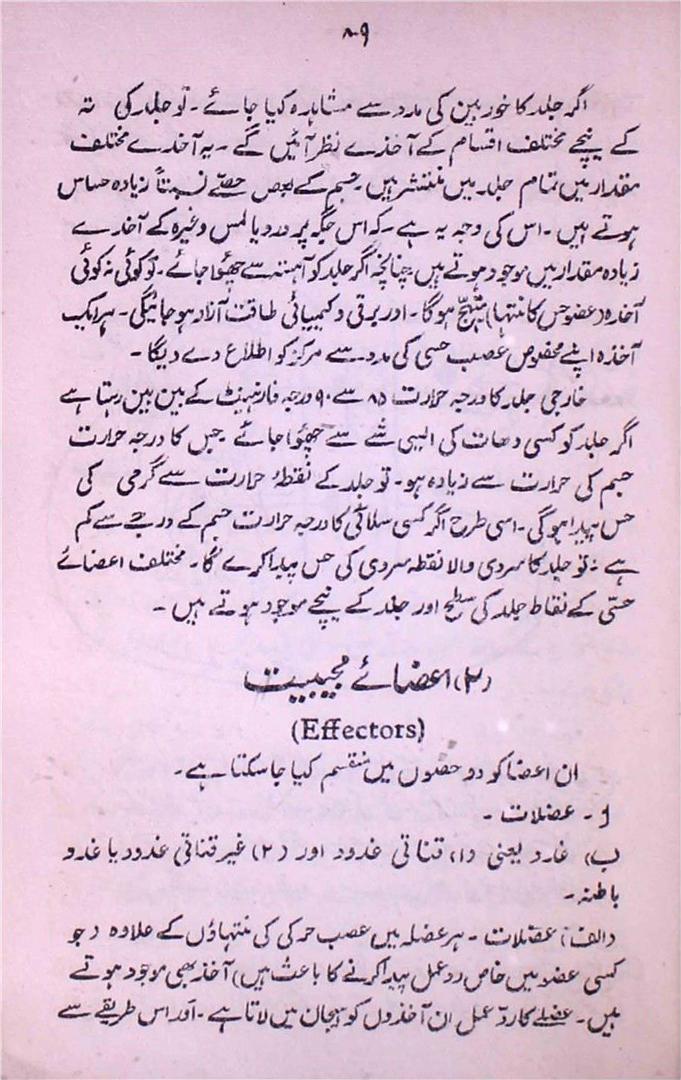 ۸۰۹
اگر جلد کا خوربین کی مدد سے مشاہدہ کیا جائے ۔ تو جلد کی تہ
کے نیچے مختلف اقسام کے آخذے نظر آئیں گے ۔ یہ آخذے مختلف
مقدار میں تمام جلد میں منتشر ہیں ۔ جسم کے بعض حصے نسبتاً زیادہ حساس
ہوتے ہیں ۔ اس کی وجہ یہ ہے ۔ کہ اس جگہ پر درد یا لمس وغیرہ کے آخذے
زیادہ مقدار میں موجود ہوتے ہیں ۔ چنانچہ اگر جلد کو آہستہ سے چھوا جائے ۔ تو کوئی نہ کوئی
آخذہ (عضو حس کا منتہا) متہیج ہوگا ۔ اور برقی و کیمیائی طاقت آزاد ہو جائیگی ۔ ہر ایک
آخذہ اپنے مخصوص عصب حسی کی مدد سے مرکز کو اطلاع دے دیگا ۔
خارجی جلد کا درجہ حرارت ۸۵ سے ۹۰ درجہ فارنہیٹ کے بین بین رہتا ہے
اگر جلد کو کسی دھات کی ایسی شے سے چھوا جائے جس کا درجہ حرارت
جسم کی حرارت سے زیادہ ہو ۔ تو جلد کے نقطۂ حرارت سے گرمی کی
حس پیدا ہوگی ۔ اسی طرح اگر کسی سلائی کا درجہ حرارت جسم کے درجے سے کم
ہے ۔ تو جلد کا سردی والا نقطہ سردی کی حس پیدا کرے گا ۔ مختلف اعضائے
حسّی کے نقاط جلد کی سطح اور جلد کے نیچے موجود ہوتے ہیں ۔
(۲) اعضائے مجیبیت
(Effectors)
ان اعضا کو دو حصوں میں منقسم کیا جا سکتا ہے ۔
ا ۔ عضلات ۔
ب) غدد یعنی (۱) قناتی غدود اور (۲) غیر قناتی غدود یا غدو
باطنہ ۔
(الف) عضلات ۔ ہر عضلہ میں عصب حرکی کی منتہاؤں کے علاوہ (جو
کسی عضلہ میں خاص ردعمل پیدا کرنے کا باعث ہیں) آخذ بھی موجود ہوتے
ہیں ۔ عضلے کا ردِّ عمل ان آخذوں کو ہیجان میں لاتا ہے ۔ اور اس طریقے سے